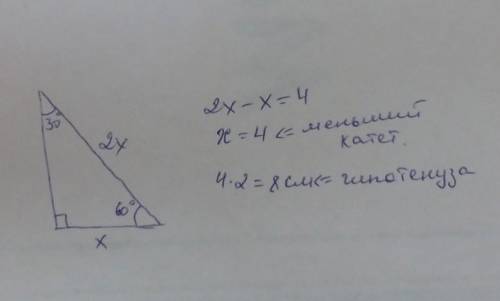 30°
2x
60°
x
2x-x=4
x=4 <= меньший
катет.
4·2=8см <= гипотенуза